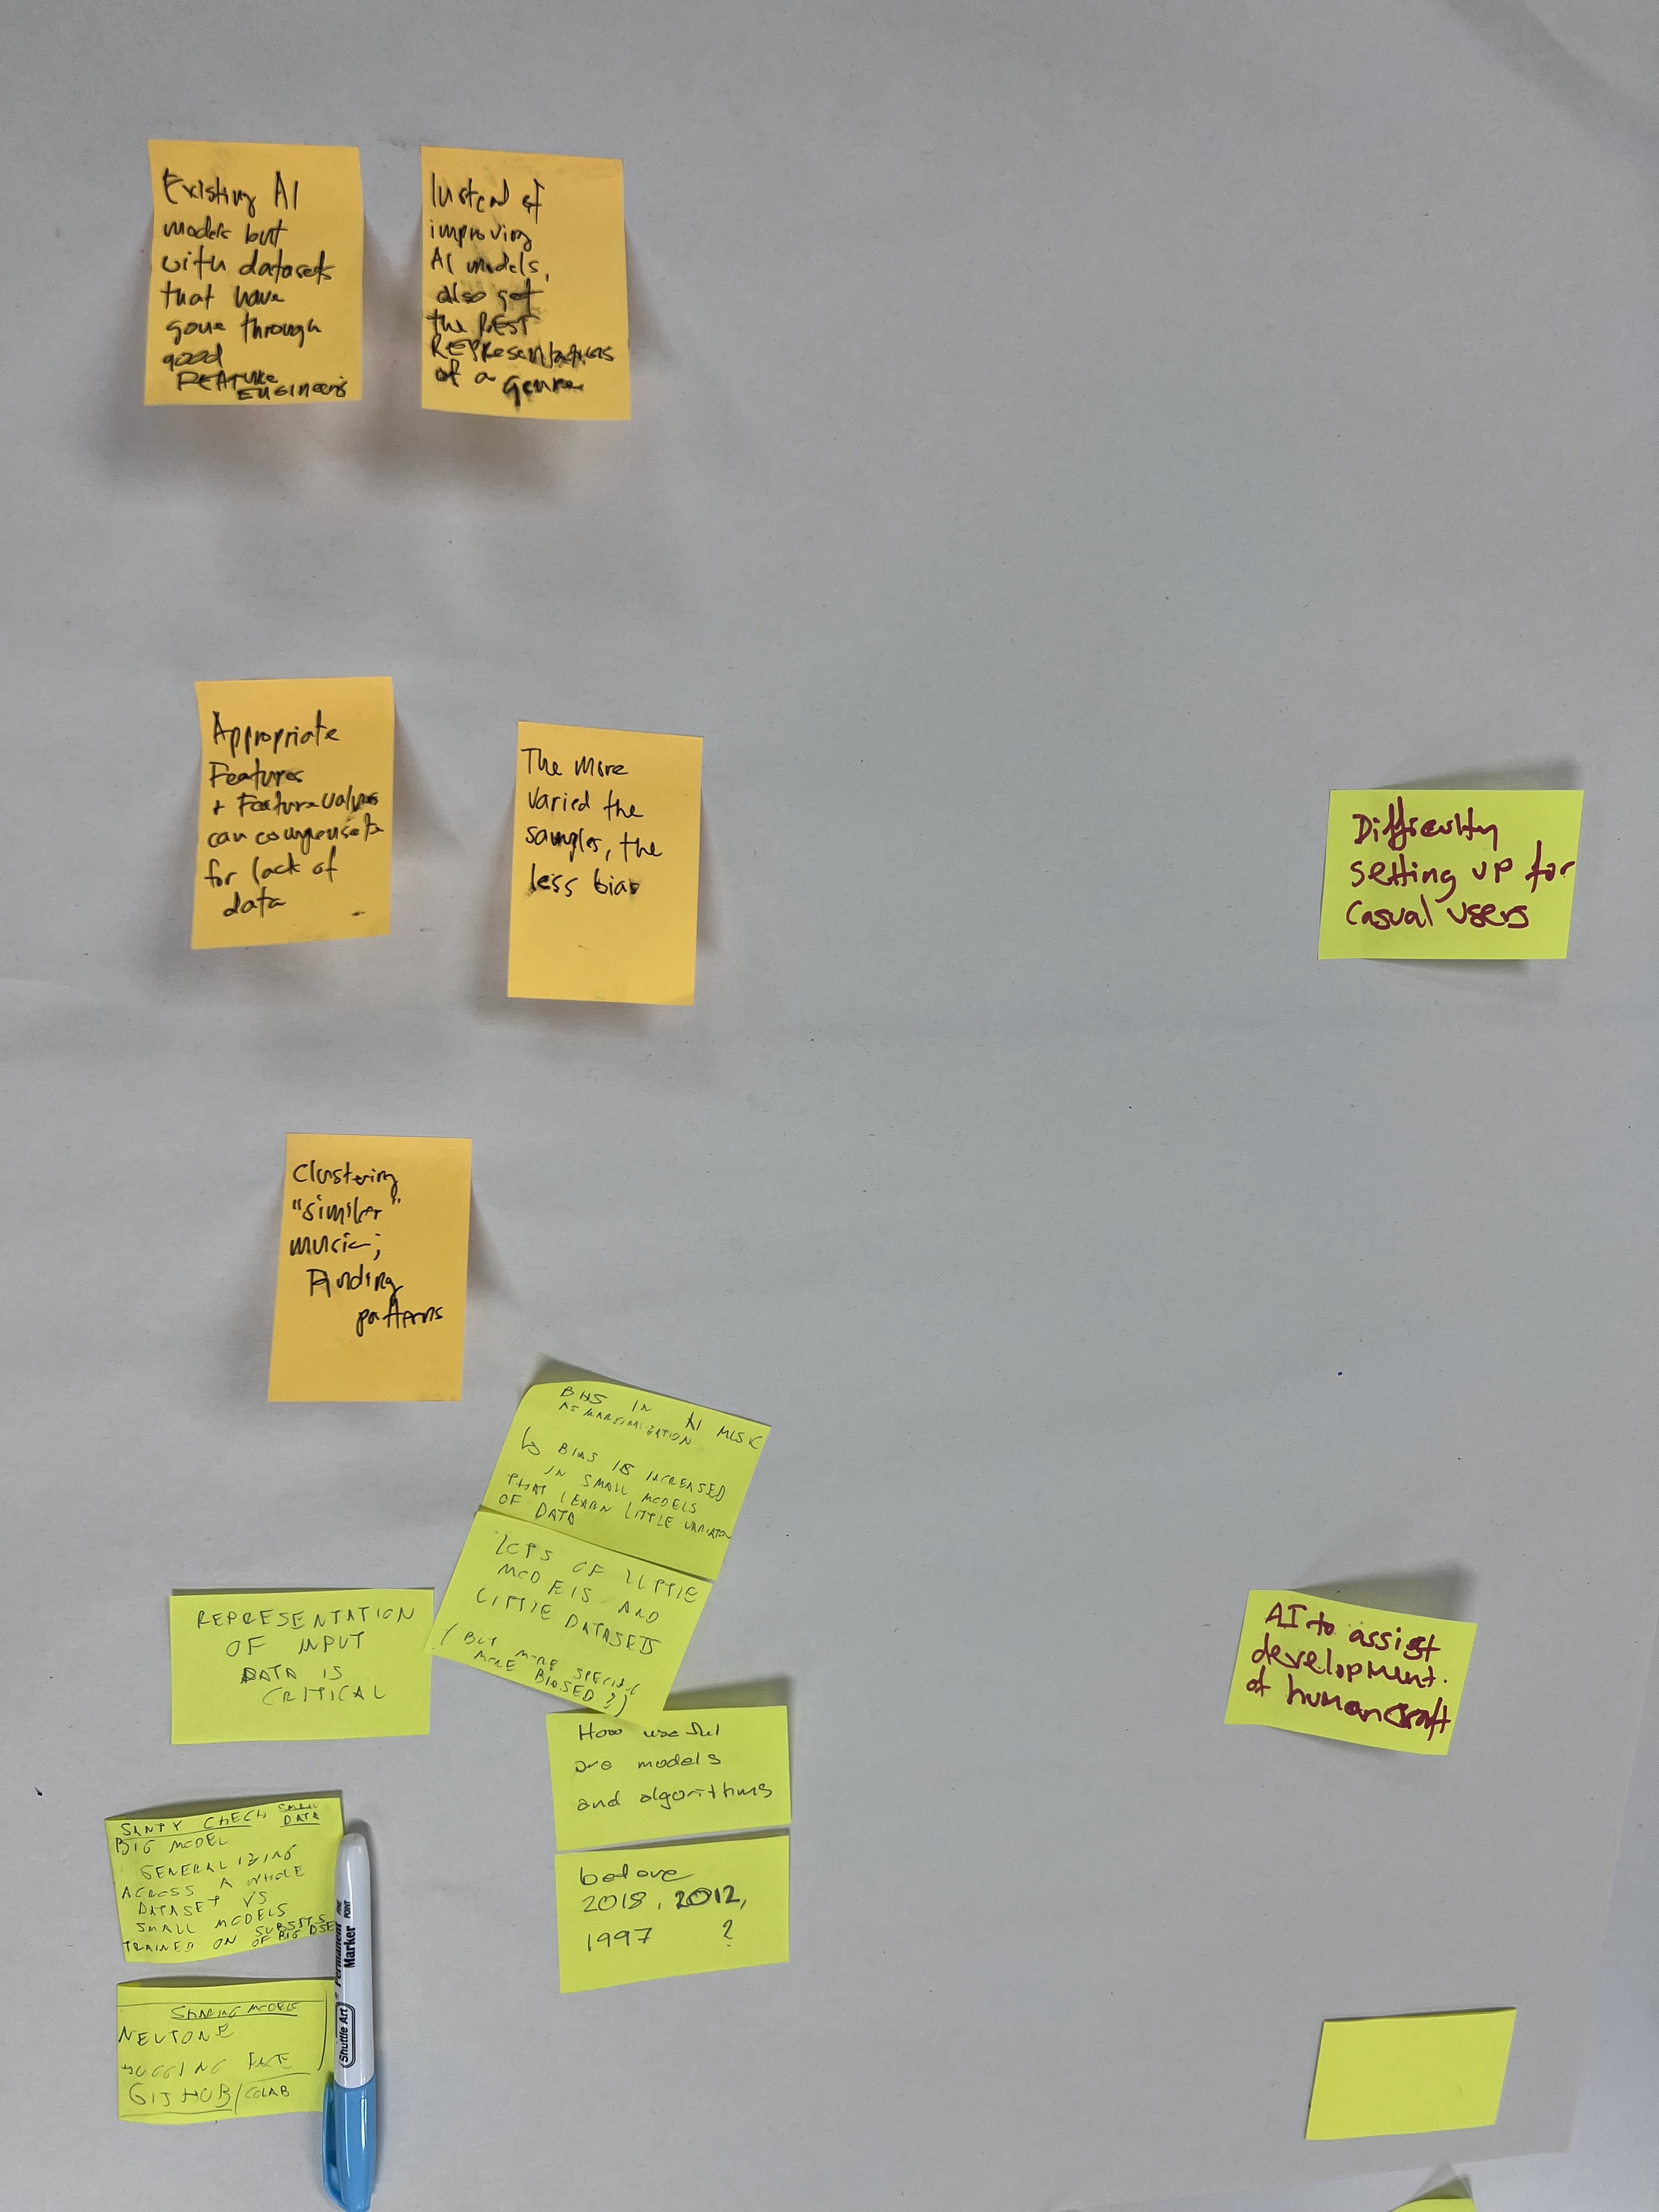 Existing AI
models but
with datasets
that have
gone through
good
FEATURE
ENGINEERING
Instead of
improving
AI models,
also get
the BEST
REPResentations
of a genre
Appropriate
Features
+ Feature values
can compensate
for lack of
data
The more
varied the
samples, the
less bias
Difficulty
setting up for
Casual users
Clustering
"similar"
music;
Finding
patterns
BIAS IN AI MUSIC
AS MARGINALIZATION
↳ BIAS IS INCREASED
IN SMALL MODELS
THAT LEARN LITTLE VARIATION
OF DATA
LOTS OF LITTLE
MODELS AND
LITTLE DATASETS
(BUT MORE SPECIFIC
MORE BIASED?)
REPRESENTATION
OF INPUT
DATA IS
CRITICAL
AI to assist
development
of human craft
How useful
are models
and algorithms
before
2018, 2012,
1997 ?
SANTY CHECK SMALL
DATA
BIG MODEL
GENERALIZING
ACROSS A WHOLE
DATASET VS
SMALL MODELS
TRAINED ON SUBSETS
OF BIG DSET
SHARING MODELS
NEUTONE
HUGGING FACE
GITHUB/COLAB
Shuttle Art
Permanent FINE
Marker POINT